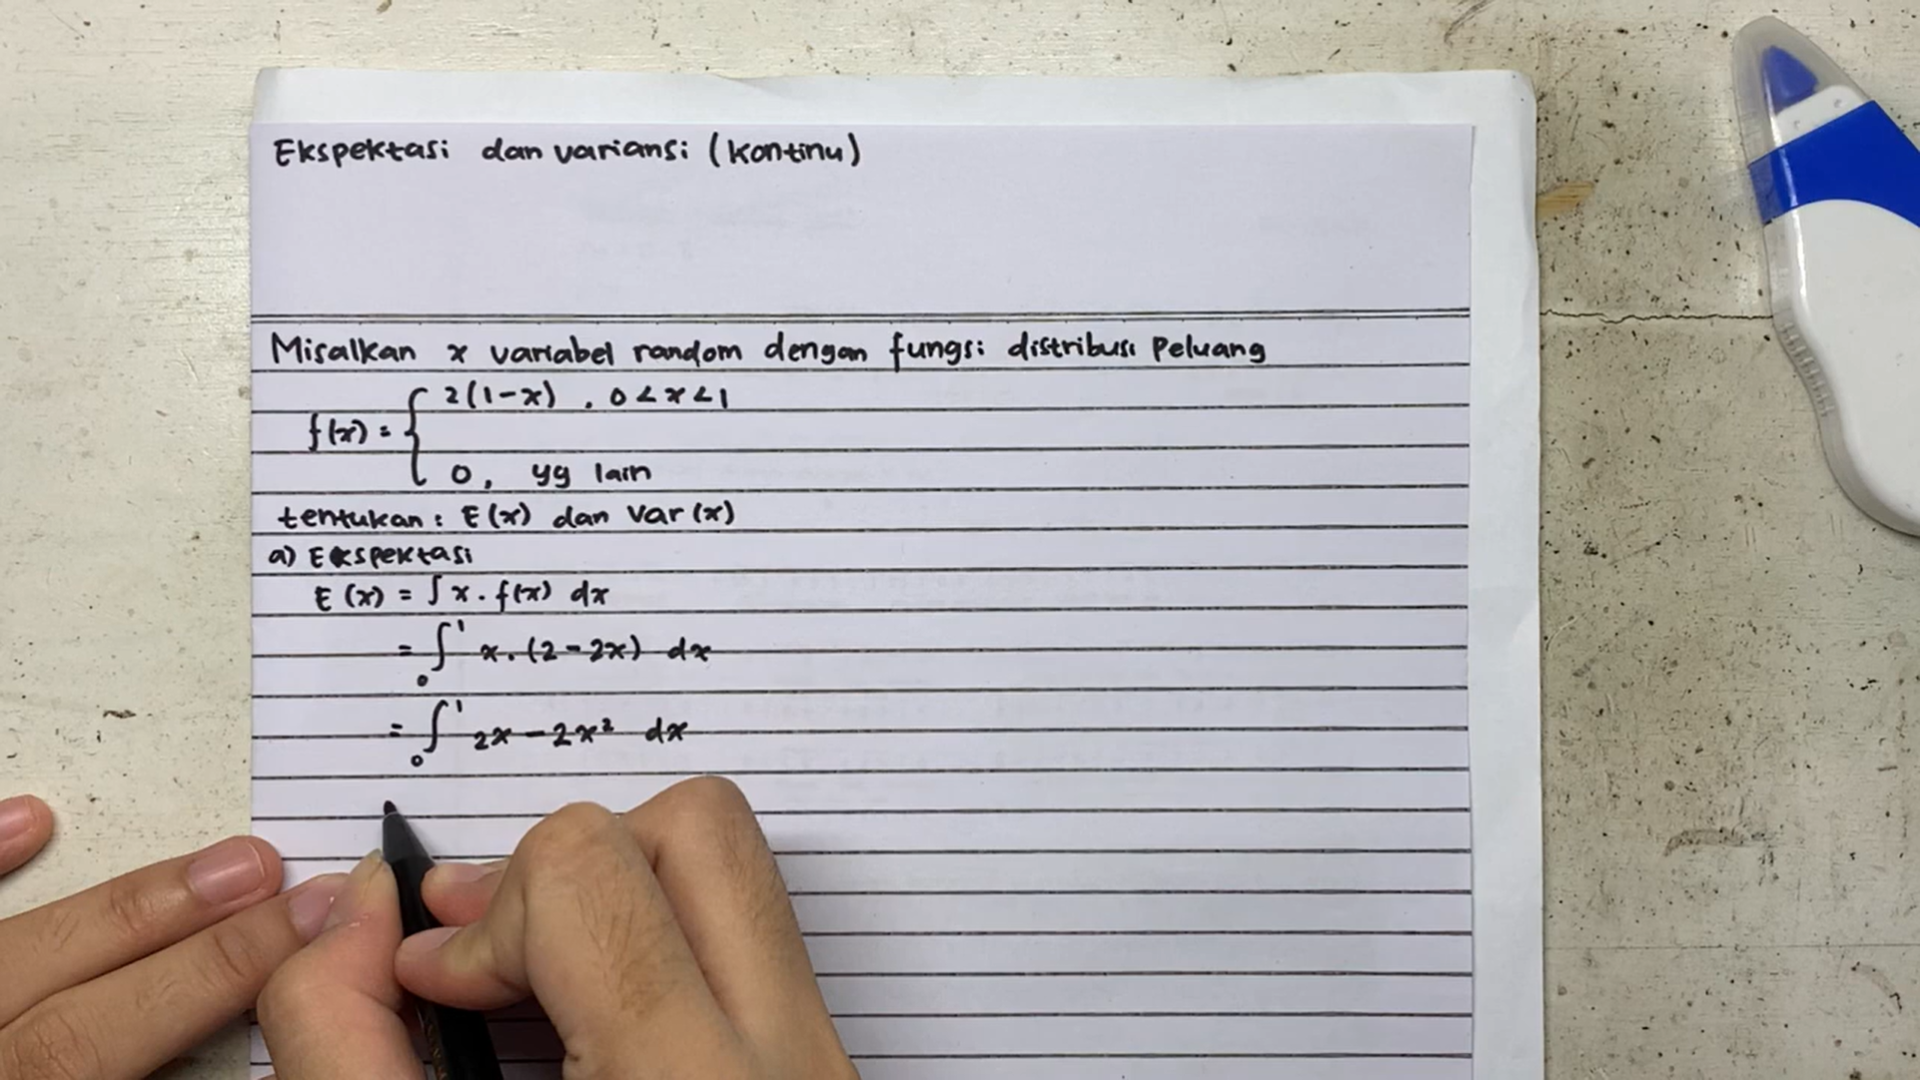 Ekspektasi dan variansi (kontinu)
Misalkan x variabel random dengan fungsi distribusi Peluang
f(x) = { 2(1-x) , 0 < x < 1
0, yg lain
tentukan : E(x) dan Var(x)
a) Ekspektasi
E(x) = ∫ x . f(x) dx
= ∫₀¹ x . (2 - 2x) dx
= ∫₀¹ 2x - 2x² dx